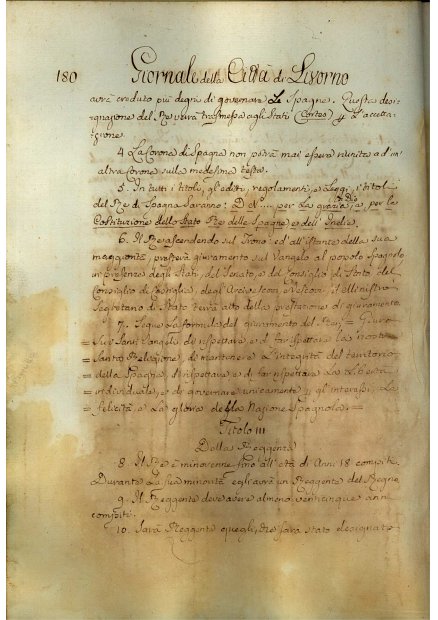 180 Giornale della Città di Livorno
avrà creduto più degni di governare Le Spagne. Questa desi-
gnazione del Re verrà trasmessa agli Stati (Cortes) p. L'accetta-
zione.
4. La Corona di Spagna non potrà mai essere riunita ad un'
altra Corona sulla medesima testa.
5. In tutti i titoli, gli editti, regolamenti, e Leggi, i titoli
del Re di Spagna saranno: D. ... per La grazia di Dio, e per la
Costituzione dello Stato Re delle Spagne, e dell'Indie.
6. Il Re ascendendo sul Trono: ed all'istante della sua
maggiorità, presterà giuramento sul Vangelo al popolo Spagnolo
in presenza degli Stati, del Senato, e del Consiglio di Stato, del
Consiglio di Castiglia, degli Arcivescovi, e Vescovi, il Ministro
Segretario di Stato terrà atto della prestazione di giuramento.
7. Segue La formula del giuramento del Re: = Giuro
sui Santi Vangeli di rispettare e di far rispettare La nostra
Santa Religione, di mantenere La Integrità del territorio
= della Spagna, di rispettare e di far rispettare La Libertà
= individuale, e di governare unicamente p. gli interessi, La
= felicità e La gloria della Nazione Spagnola. =
Titolo III
Della Reggenza
8. Il Re è minorenne fino all'età di Anni 18 compiti.
Durante La sua minorità egli avrà un Reggente del Regno.
9. Il Reggente deve avere almeno venticinque anni
compiti.
10. Sarà Reggente quegli, che sarà stato designato